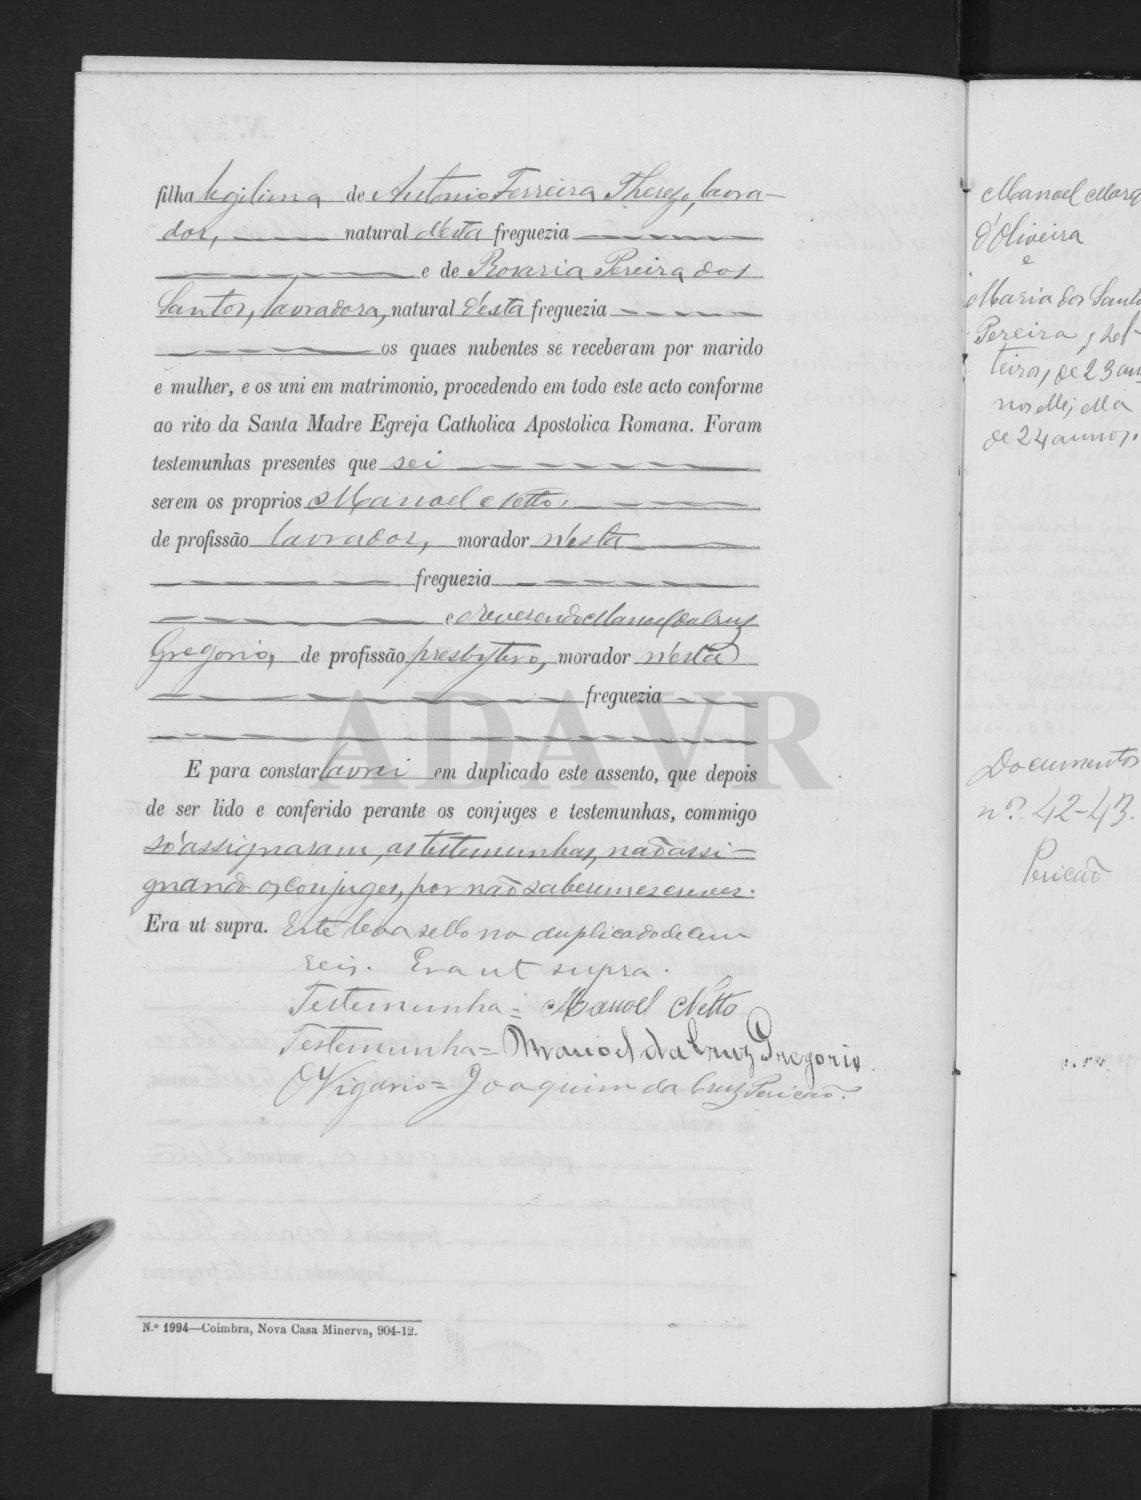 filha legitima de Antonio Ferreira Therezo, lavra-
dor, natural d'esta freguezia
e de Rosaria Pereira dos
Santos, lavradora, natural d'esta freguezia
os quaes nubentes se receberam por marido
e mulher, e os uni em matrimonio, procedendo em todo este acto conforme
ao rito da Santa Madre Egreja Catholica Apostolica Romana. Foram
testemunhas presentes que sei
serem os proprios Manoel Netto,
de profissão lavrador, morador n'esta
freguezia
e o reverendo Manoel da Cruz
Gregorio, de profissão presbytero, morador n'esta
freguezia
ADAVR
E para constar lavrei em duplicado este assento, que depois
de ser lido e conferido perante os conjuges e testemunhas, commigo
só assignaram, as testemunhas, não assi-
gnando os conjuges, por não saberem escrever.
Era ut supra. Este leva sello no duplicado de cem
reis. Era ut supra.
Testemunha = Manoel Netto
Testemunha = Manoel da Cruz Gregorio.
O Vigario = Joaquim da Cruz Pericão.
N.º 1994—Coimbra, Nova Casa Minerva, 904-12.
Manoel Marq
d'Oliveira
e
Maria dos Santo
Pereira, sol-
teiros, de 23 an
nos elle; ella
de 24 annos.
Documentos
n.os 42-43.
Pericão